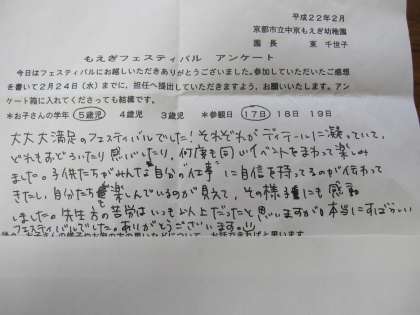 平成22年2月
京都市立中京もえぎ幼稚園
園長 東 千世子
もえぎフェスティバル アンケート
今日はフェスティバルにお越しいただきありがとうございました。参加していただいたご感想
を書いて2月24日（水）までに、担任へ提出していただきますよう、お願いします。アン
ケート箱に入れてくださっても結構です。
*お子さんの学年 5歳児 4歳児 3歳児 *参観日 17日 18日 19日
大大大満足のフェスティバルでした！それぞれがディテールに凝っていて、
どれもおどろいたり 感心したり、何度も同じイベントをまわって楽しみ
ました。子供たちがみんな自分の"仕事"に自信を持ってるのが伝わって
きたし、自分たちも楽しんでいるのが見えて、その様子にも感動
しました。先生方の苦労はいつも以上だったと思いますが本当にすばらしい
フェスティバルでした。ありがとうございます。